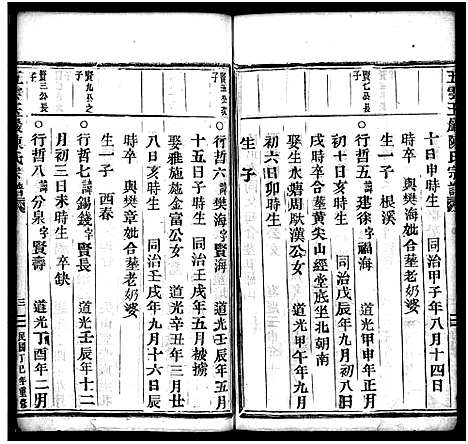 五雲玉巖陳氏宗譜
十日申時生 同治甲子年八月十四日
賢七公長子
行哲五 諱建徐 字福海 道光甲申年正月
初十日亥時生 同治壬戌年九月初八日
時卒 與樊章妣合塟黃尖山經堂底坐北朝南
生一子 根溪
娶生水碧周畎漢公女 道光甲午年九月
初六日卯時生
生子
賢五公次子
行哲六 諱樊海 字賢海 道光壬辰年五月
十五日子時生 同治壬戌年五月被擄
娶雅施施金富公女 道光辛丑年三月廿
八日亥時生 同治壬戌年九月十六日辰
時卒 與樊章妣合塟老奶婆
生一子 酉春
賢九公之子
行哲七 諱錫錢 字賢長 道光壬辰年十二
月初三日未時生 卒缺
賢三公長子
行哲八 諱分泉 字賢壽 道光丁酉年二月
五雲玉巖陳氏宗譜
三
民國丁巳年重修